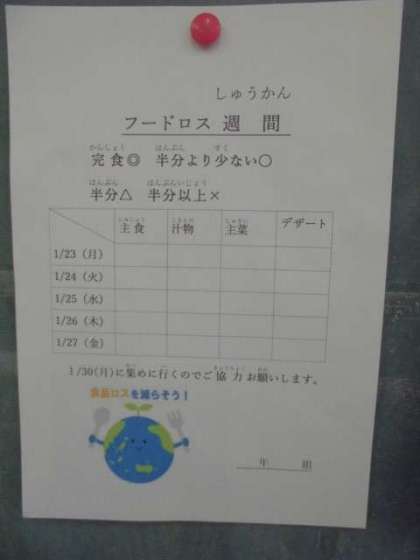 しゅうかん
フードロス 週 間
かんしょく はんぶん すく
完食◎ 半分より少ない○
はんぶん はんぶんいじょう
半分△ 半分以上×
しゅしょく しるもの しゅさい
主食 汁物 主菜 デザート
1/23（月）
1/24（火）
1/25（水）
1/26（木）
1/27（金）
1/30(月)に集めに行くのでご協力お願いします。
食品ロスを減らそう！
年 組